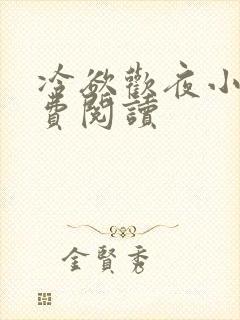 冷欲歡夜小
費閱讀
金賢秀